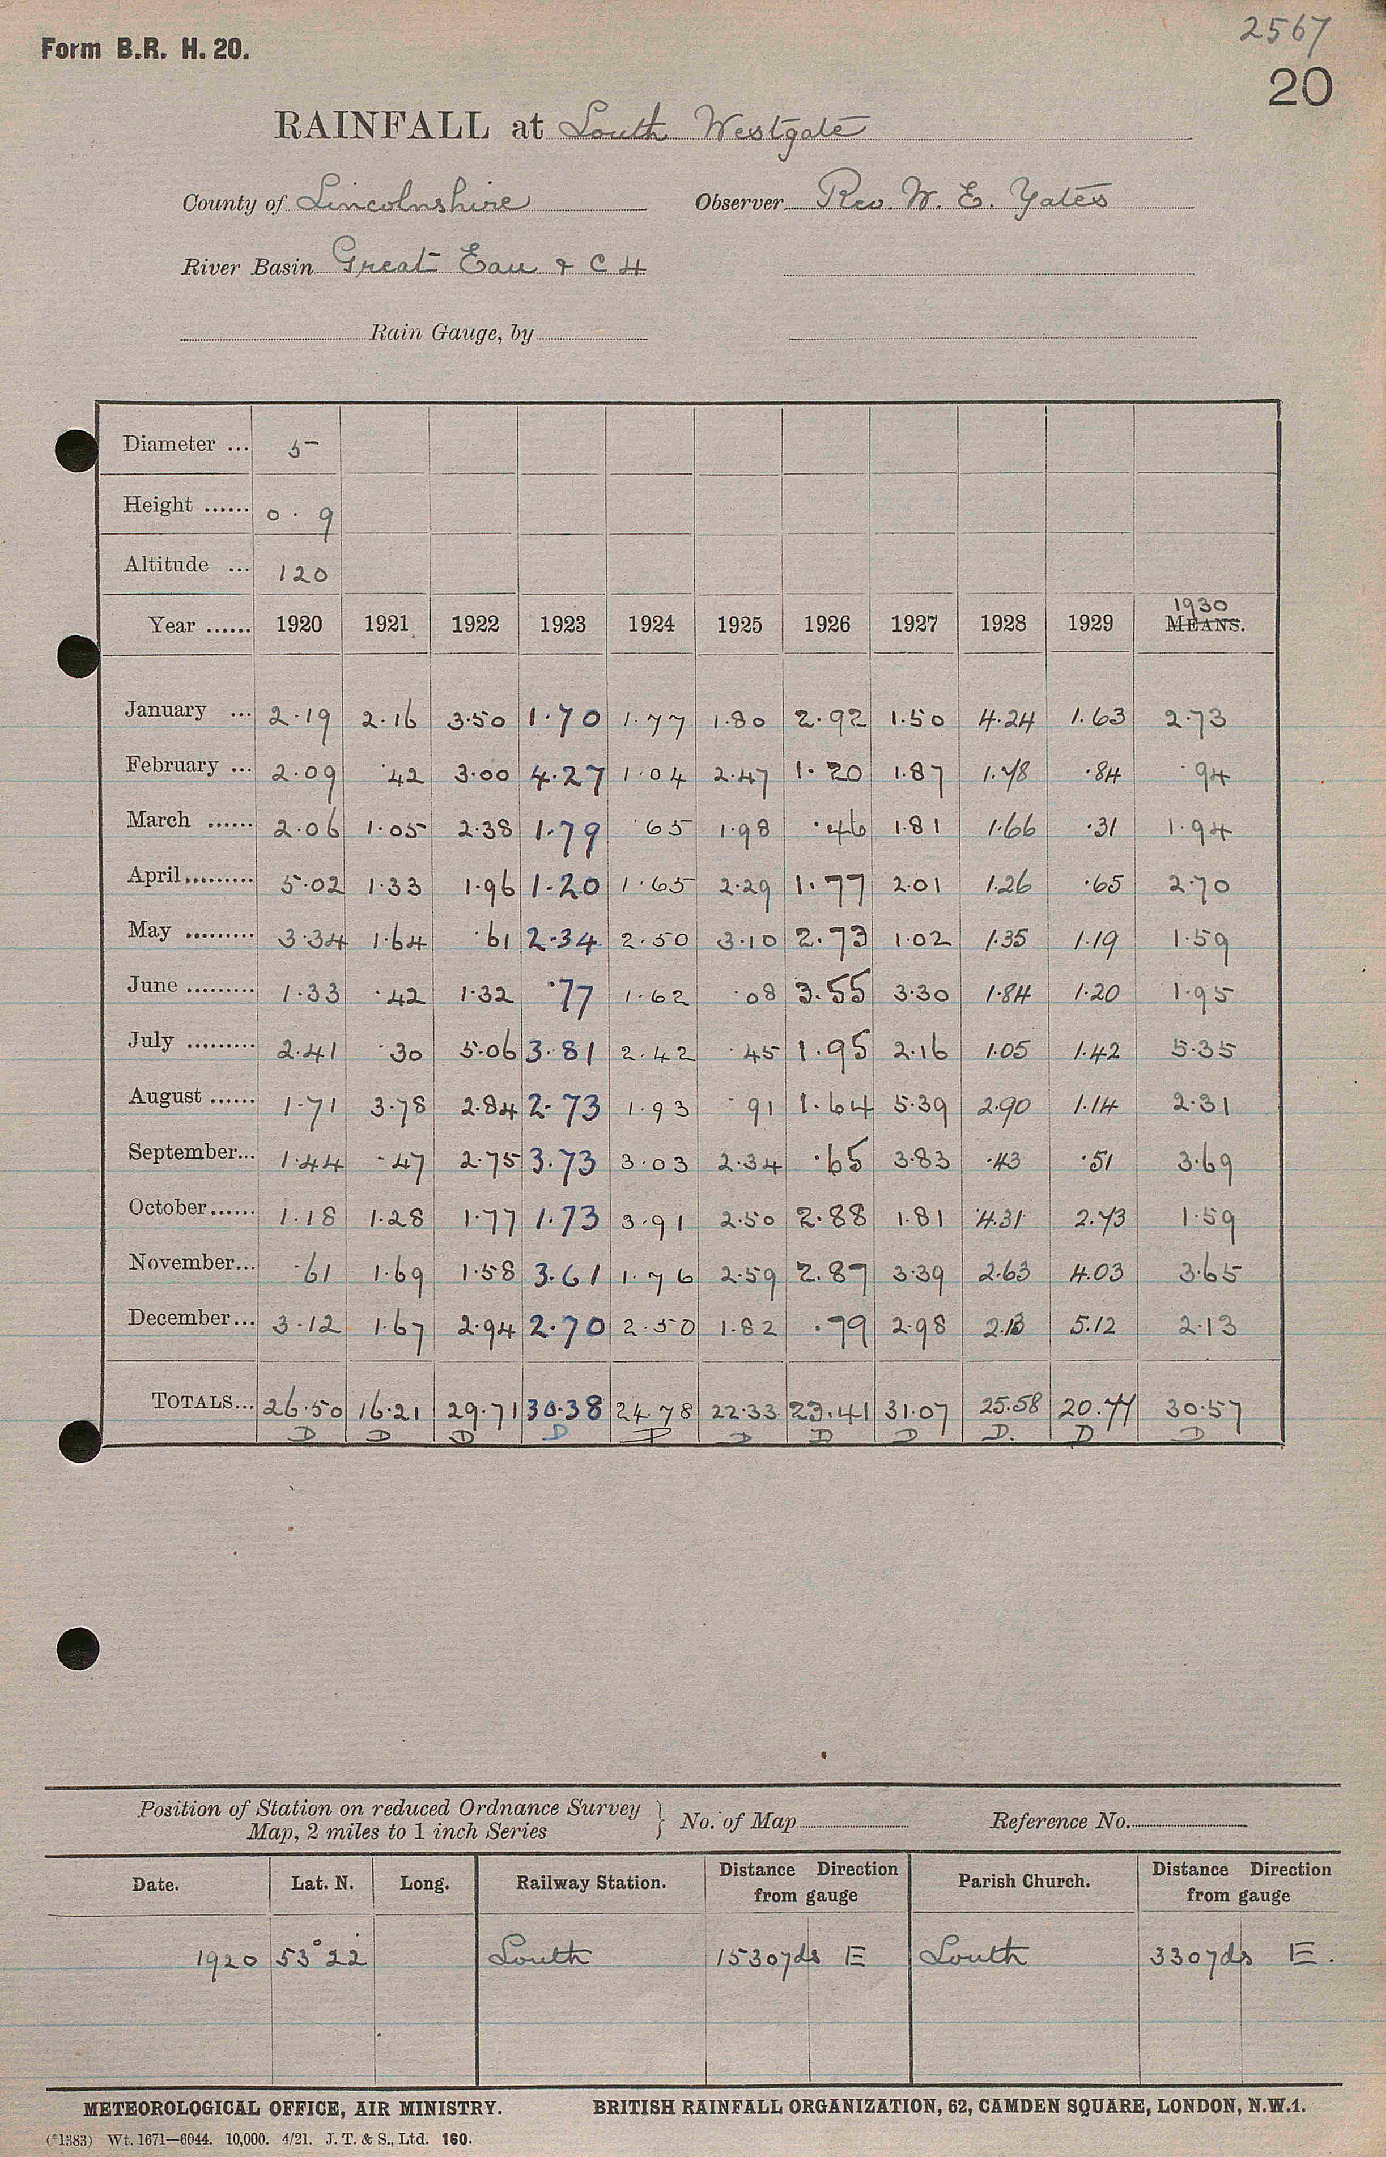 2567
Form B.R. H. 20.
20
RAINFALL at Louth Westgate
County of Lincolnshire Observer Rev W. E. Yates
River Basin Great Eau & C 4
Rain Gauge, by
Diameter ... 5
Height ...... 0.9
Altitude ... 120
1930
Year ...... 1920 1921 1922 1923 1924 1925 1926 1927 1928 1929 MEANS.
January ... 2.19 2.16 3.50 1.70 1.77 1.80 2.92 1.50 4.24 1.63 2.73
February ... 2.09 .42 3.00 4.27 1.04 2.47 1.20 1.87 1.78 .84 .94
March ...... 2.06 1.05 2.38 1.79 .65 1.98 .46 1.81 1.66 .31 1.94
April......... 5.02 1.33 1.96 1.20 1.65 2.29 1.77 2.01 1.26 .65 2.70
May ......... 3.34 1.64 .61 2.34 2.50 3.10 2.73 1.02 1.35 1.19 1.59
June ......... 1.33 .42 1.32 .77 1.62 .08 3.55 3.30 1.84 1.20 1.95
July ......... 2.41 .30 5.06 3.81 2.42 .45 1.95 2.16 1.05 1.42 5.35
August ...... 1.71 3.78 2.84 2.73 1.93 .91 1.64 5.39 2.90 1.14 2.31
September... 1.44 .47 2.75 3.73 3.03 2.34 .65 3.83 .43 .51 3.69
October...... 1.18 1.28 1.77 1.73 3.91 2.50 2.88 1.81 4.31 2.73 1.59
November... .61 1.69 1.58 3.61 1.76 2.59 2.87 3.39 2.63 4.03 3.65
December... 3.12 1.67 2.94 2.70 2.50 1.82 .79 2.98 2.13 5.12 2.13
TOTALS... 26.50 16.21 29.71 30.38 24.78 22.33 23.41 31.07 25.58 20.77 30.57
D D D D D D D D D. D D
Position of Station on reduced Ordnance Survey
Map, 2 miles to 1 inch Series } No. of Map Reference No.
Date. Lat. N. Long. Railway Station. Distance Direction from gauge Parish Church. Distance Direction from gauge
1920 53°22' Louth 1530yds E Louth 330yds E.
METEOROLOGICAL OFFICE, AIR MINISTRY. BRITISH RAINFALL ORGANIZATION, 62, CAMDEN SQUARE, LONDON, N.W.1.
(*1383) Wt. 1671—6044. 10,000. 4/21. J. T. & S., Ltd. 160.